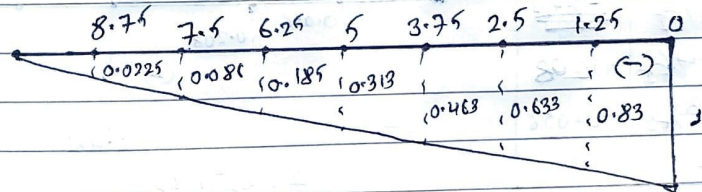 8.75 7.5 6.25 5 3.75 2.5 1.25 0
0.0225 0.081 0.185 0.313 (-)
0.463 0.633 0.83